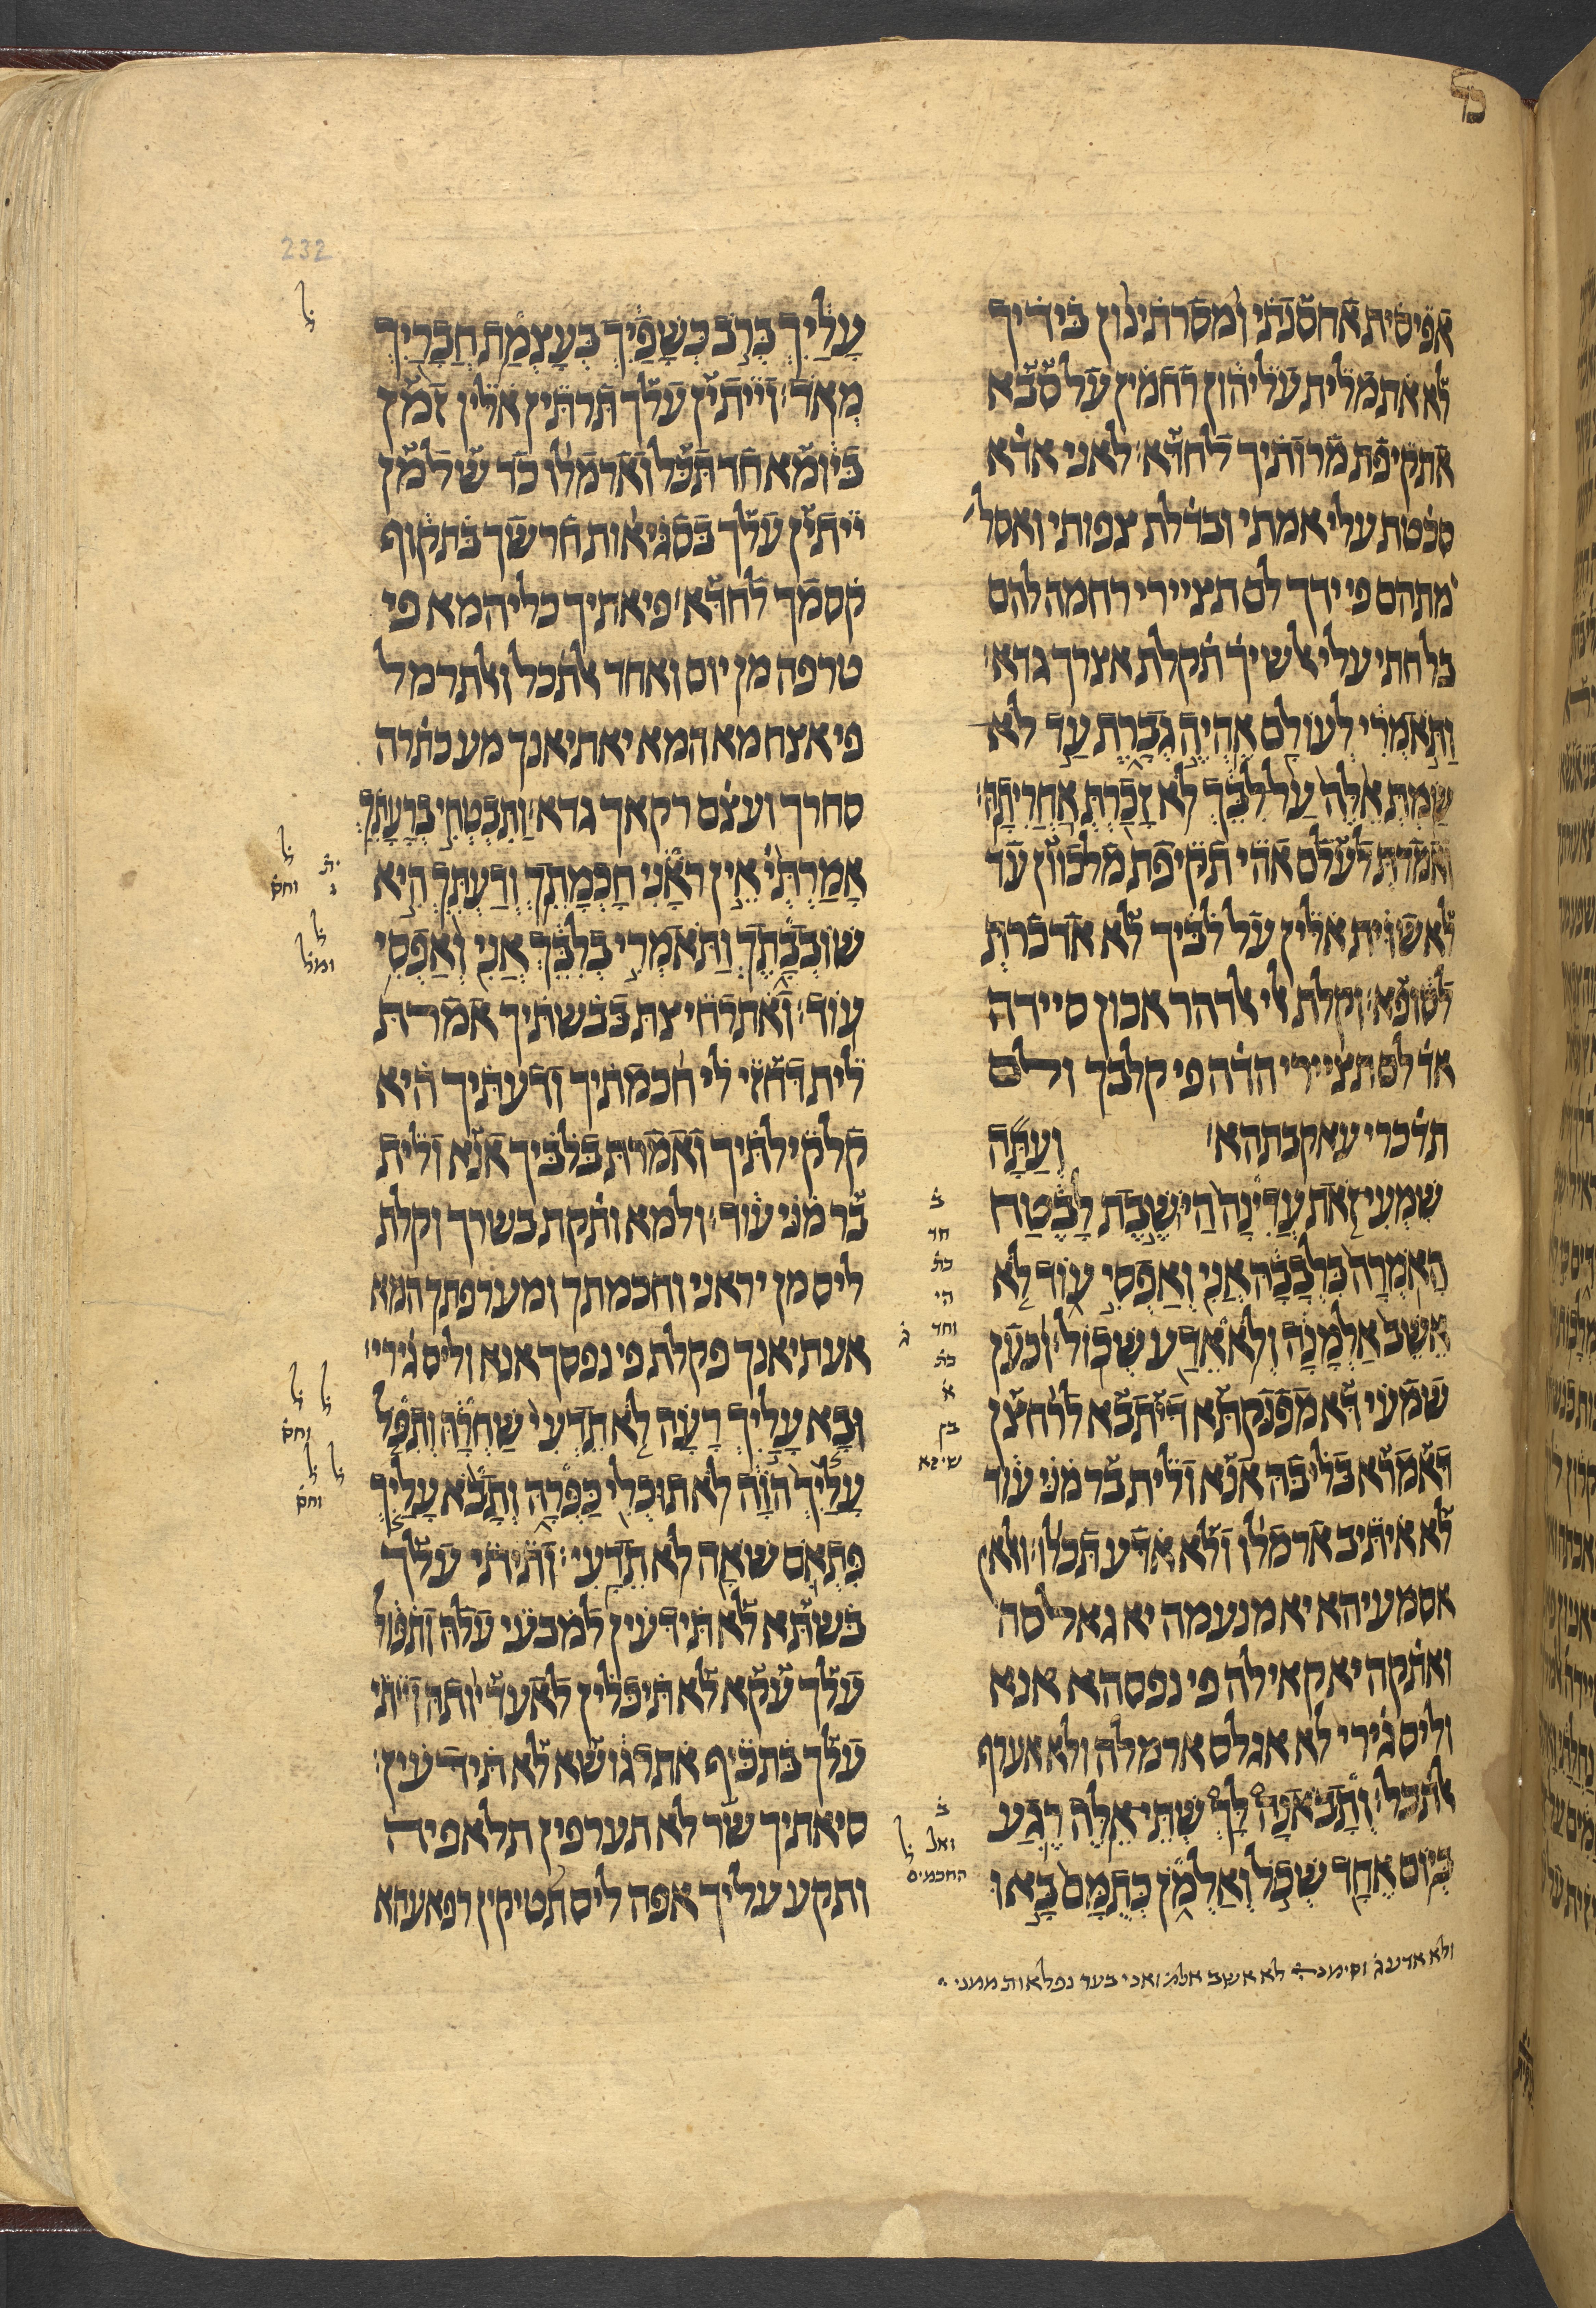 אפיסית אחסנתי ומסרתינון בידיך
לא אתמלית עליהון רחמין על סבא
אתקיפת מרותיך לחדא׃ לאני אדא
סכטת עלי אמתי ובדלת צפותי ואסל
מתהם פי ידך לם תציירי רחמה להם
תקלת אצרך גדא׃
וַתֹּאמְרִי לְעוֹלָם אֶהְיֶה גְבָרֶת עַד לֹא
שַׂמְתְּ אֵלֶּה עַל לִבֵּךְ לֹא זָכַרְתְּ אַחֲרִיתָהּ׃
ואמרת לעלם אהי תקיפת מלכוון עד
לא שוית אלין על לביך לא אדכרת
לסופא׃ וקלת אלי אלדהר אכון סיידה
אד לם תציירי הדה פי קלבך ולם
תדכרי עאקבתהא׃ וְעַתָּה
שִׁמְעִי זֹאת עֲדִינָה הַיּוֹשֶׁבֶת לָבֶטַח
הָאֹמְרָה בִּלְבָבָהּ אֲנִי וְאַפְסִי עוֹד לֹא
אֵשֵׁב אַלְמָנָה וְלֹא אֵדַע שְׁכוֹל׃ וכען
שמעי דא מפנקתא דיתבא לרחצן
דאמרא בליבה אנא ולית בר מני עוד
לא איתיב ארמלו ולא אדע תכלו׃ ואלאן
אסמעיהא יא מנעמה יא גאלסה
ואתקה יא קאילה פי נפסהא אנא
וליס גירי לא אגלס ארמלה ולא אערף
אלתכל׃ וְתָבֹאנָה לָּךְ שְׁתֵּי אֵלֶּה רֶגַע
בְּיוֹם אֶחָד שְׁכֹל וְאַלְמֹן כְּתֻמָּם בָּאוּ
ב
חד
כת
הי
וחד ג
כת
א
בן
שיזא
ב
ואל ל
החכמים
ולא אדע ג וסימנה לא אשב אלמ ואני בער נפלאות ממני
232
עָלַיִךְ בְּרֹב כְּשָׁפַיִךְ בְּעָצְמַת חֲבָרַיִךְ
מְאֹד׃ וייתין עלך תרתין אלין זמן
ביומא חד תכל וארמלו כד שלמן
ייתין עלך בסגיאות חרשך בתקוף
קסמך לחדא׃ פיאתיך כליהמא פי
טרפה מן יום ואחד אלתכל ואלתרמל
פי אצח מא המא יאתיאנך מע כתרה
סחרך ועצם רקאך גדא׃ וַתִּבְטְחִי בְרָעָתֵךְ
אָמַרְתְּ אֵין רֹאָנִי חָכְמָתֵךְ וְדַעְתֵּךְ הִיא
שׁוֹבְבָתֶךְ וַתֹּאמְרִי בְלִבֵּךְ אֲנִי וְאַפְסִי
עוֹד׃ ואתרחיצת בבשתיך אמרת
לית דחזי לי חכמתיך ודעתיך היא
קלקילתיך ואמרת בלביך אנא ולית
בר מני עוד׃ ולמא ותקת בשרך וקלת
ליס מן יראני וחכמתך ומערפתך המא
אעתיאנך פקלת פי נפסך אנא וליס גירי׃
וּבָא עָלַיִךְ רָעָה לֹא תֵדְעִי שַׁחְרָהּ וְתִפֹּל
עָלַיִךְ הוָֹה לֹא תוּכְלִי כַּפְּרָהּ וְתָבֹא עָלַיִךְ
פִּתְאֹם שׁוֹאָה לֹא תֵדָעִי׃ ותיתי עלך
בשתא לא תידעין למבעי עלה ותפול
עלך עקא לא תיכלין לאעדיותה ותיתי
עלך בתכיף אתרגושא לא תידעין׃
סיאתיך שר לא תערפין תלאפיה
ותקע עליך אפה ליס תטיקין רפאעהא
ל
ל
וחס
ל
ומל
ל ל
וחס
ל ל
וחס